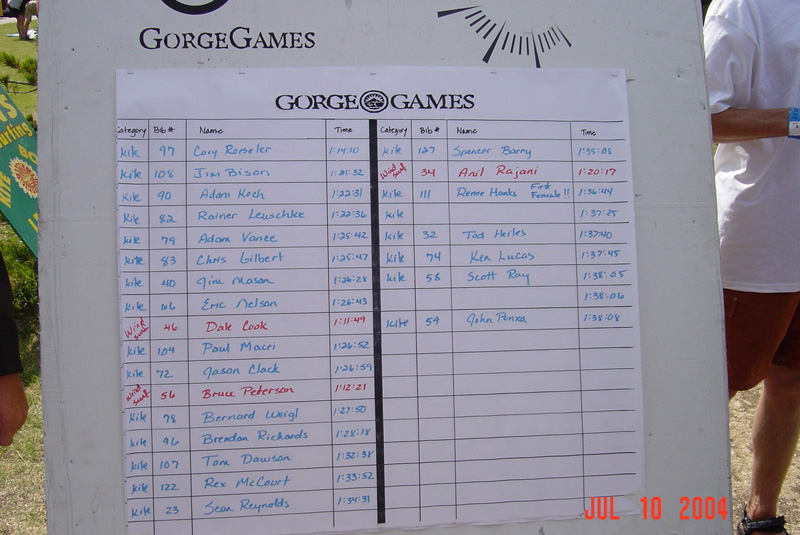 GORGEGAMES
GORGE GAMES
Category Bib # Name Time Category Bib # Name Time
kite 97 Cory Roeseler 1:14:10
kite 108 Jim Bison 1:21:32
kite 90 Adam Koch 1:22:31
kite 82 Rainer Leuschke 1:22:36
kite 79 Adam Vance 1:25:42
kite 83 Chris Gilbert 1:25:47
kite 40 Jim Mason 1:26:28
kite 106 Eric Nelson 1:26:43
Wind surf 46 Dale Cook 1:11:49
kite 104 Paul Macri 1:26:52
kite 72 Jason Clack 1:26:59
Wind surf 56 Bruce Peterson 1:12:21
Kite 78 Bernard Weigl 1:27:50
kite 96 Brendan Richards 1:28:18
kite 107 Tom Dawson 1:32:38
kite 122 Rex McCourt 1:33:52
kite 23 Sean Reynolds 1:34:31
kite 127 Spencer Barry 1:35:08
Wind surf 34 Anil Rajani 1:20:17
kite 111 Renee Hanks First Female!! 1:36:44
kite 1:37:25
kite 32 Tod Heiles 1:37:40
kite 74 Ken Lucas 1:37:45
kite 58 Scott Ray 1:38:05
1:38:06
kite 59 John 1:38:08
JUL 10 2004